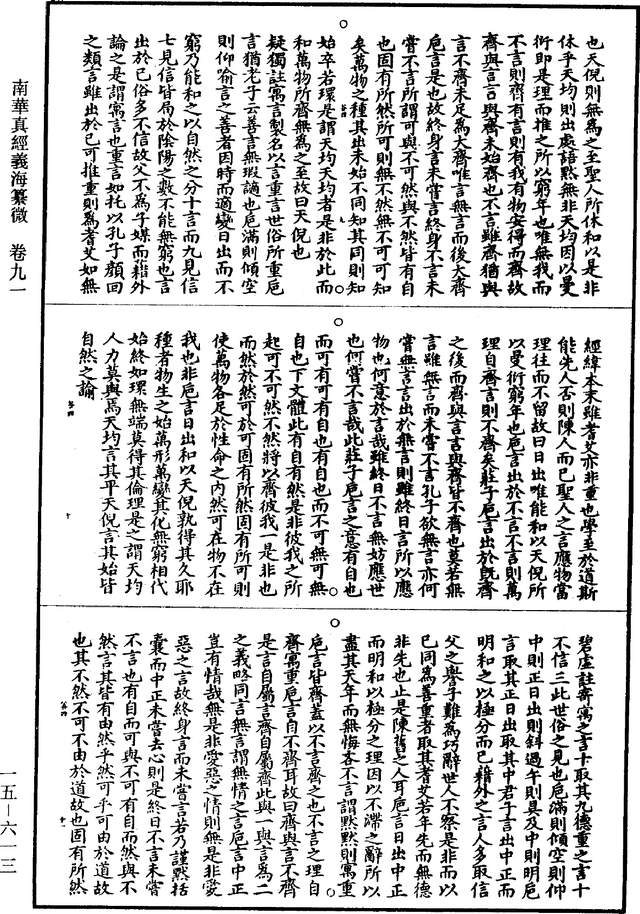 南華真經義海纂微　卷九一
一五―六一三
也天倪則無為之至聖人所休和以是非
休乎天均則出處語默無非天均因以曼
衍即是理而推之所以窮年也唯無我而
不言則齊有言則有我有物安得而齊故
齊與言言與齊未始齊也不言雖齊猶與
言不齊未足為大齊唯言無言而後大齊
巵言是也故終身言未嘗言終身不言未
嘗不言所謂可與不可然與不然皆有自
也固有所然所可則無不然無不可可知
矣萬物之種其出未始不同知其同則知
始卒若環是謂天均天均者是非於此而
和萬物所齊無為之至故曰天倪也
疑獨註寓言製名以言重言世俗所重巵
言猶老子云善言無瑕讁也巵滿則傾空
則仰喻言之善者因時而適變日出而不
窮乃能和之以自然之分十言而九見信
七見信皆局於陰陽之數不能無窮也言
出於己俗多不信故父不為子媒而藉外
論之是謂寓言也重言如托以孔子顏回
之類言雖出於己可推重則為耆艾如無
經緯本末雖耆艾亦非重也學至於道斯
能先人否則陳人而已聖人之言應物當
理往而不留故曰日出唯能和以天倪所
以曼衍窮年也巵言出於不言不言則萬
理自齊言則不齊矣莊子巵言出於既齊
之後而齊與言言與齊皆不齊也莫若無
言雖無言而未嘗不言孔子欲無言亦何
嘗無言言出於無言則雖終日言所以應
物也何意於言哉雖終日不言無妨應世
也何嘗不言哉此莊子巵言之意有自也
而可有可有自也有自也而不可無可無
自也下文體此有自有然是非彼我之所
起可不可然不然將以齊彼我一是非也
而然於然可於可固有所然固有所可則
使萬物各足於性命之內然可在物不在
我也非巵言日出和以天倪孰得其久耶
種者物生之始萬形萬變其化無窮相代
始終如環無端莫得其倫理是之謂天均
人力莫與焉天均言其平天倪言其始皆
自然之諭
碧虛註寄寓之言十取其九德重之言十
不信三此世俗之見也巵滿則傾空則仰
中則正日出則斜過午則昃及中則明巵
言取其正日出取其中君子言出中正而
明和之以極分而已藉外之言人多取信
父之譽子難為巧辭世人不察是非而以
己同為善重者取其耆艾若年先而無德
非先也止是陳舊之人耳巵言日出中正
而明和以極分之理因以不滯之辭所以
盡其天年而無悔吝不言謂默默則寓重
巵言皆齊蓋以不言齊之也不言之理自
齊寓重巵言自不齊耳故曰齊與言不齊
是言自屬言齊自屬齊此與一與言為二
之義略同言無言謂無情之言巵言中正
豈有情哉無是非愛惡之情則無是非愛
惡之言故終身言而未嘗言若乃謹默括
囊而中正未嘗去心則是終日不言未嘗
不言也有自而可與不可有自而然與不
然言其皆有由然乎然可乎可由於道故
也其不然不可不由於道故也固有所然